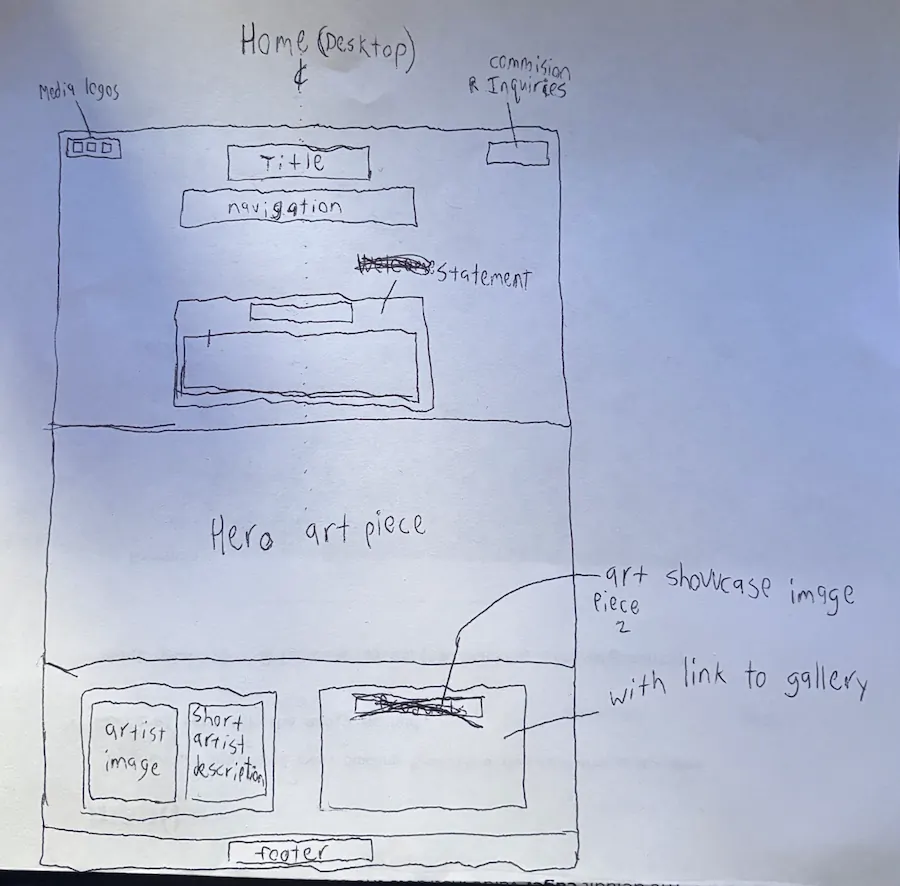 Home (Desktop)
Media logos
commision
R Inquiries
Title
navigation
Statement
Hero art piece
art showcase image
piece
2
with link to gallery
artist
image
short
artist
description
footer